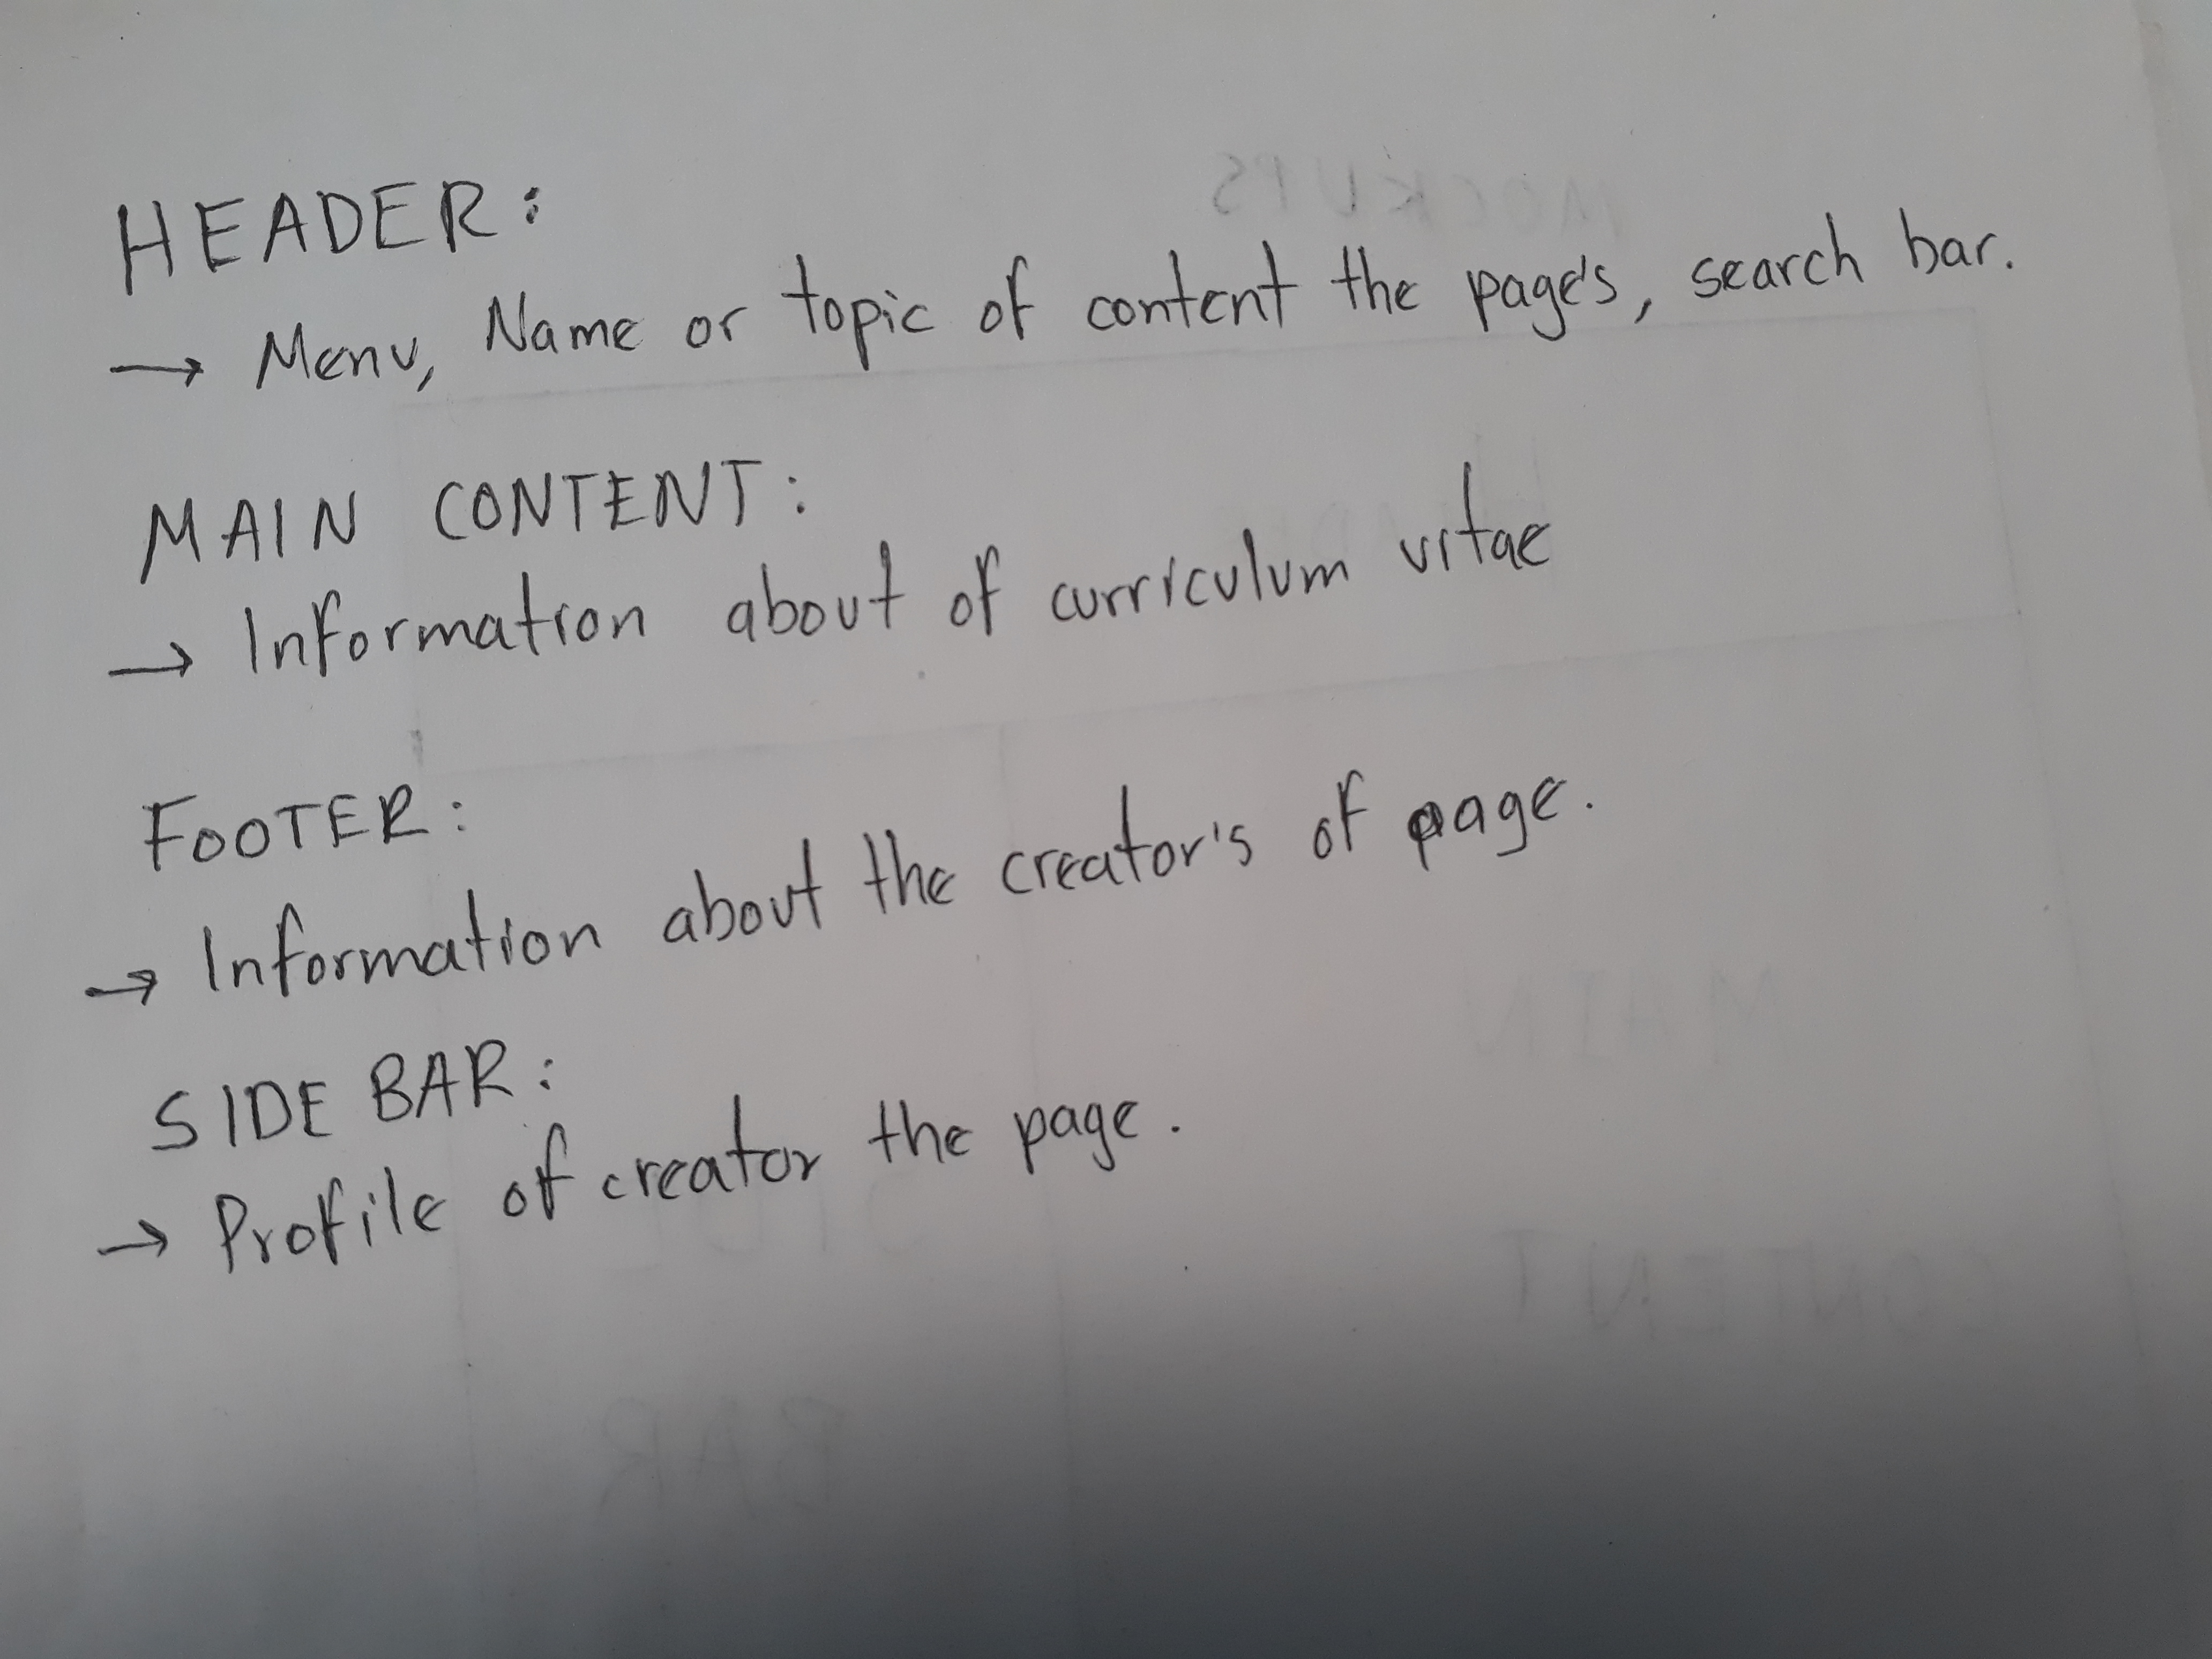 HEADER:
→ Menu, Name or topic of content the page's, search bar.
MAIN CONTENT:
→ Information about of curriculum vitae
FOOTER:
→ Information about the creator's of page.
SIDE BAR:
→ Profile of creator the page.